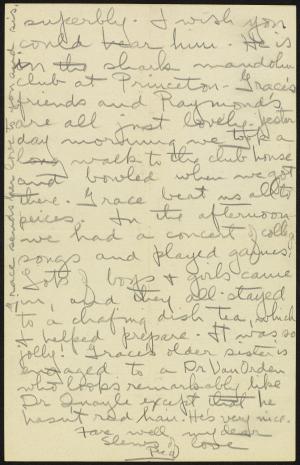 superbly. I wish you
could hear him. He is
in the shark mandolin
club at Princeton. Grace's
friends and Raymonds
are all just lovely. Yester
day morning we took a
long walk to the club house
and bowled when we got
there. Grace beat us all to
peices. In the afternoon
we had a concert of colleg
songs and played games.
Lots of boys & girls came
in, and they all stayed
to a chafing dish tea, which
I helped prepare. It was so
jolly! Grace's older sister is
engaged to a Dr Van Orden
who looks remarkably like
Dr Quayle except that he
hasn't red hair. He's very nice.
Fare well my dear
Slews of love
Grace sends her love to you and sis.